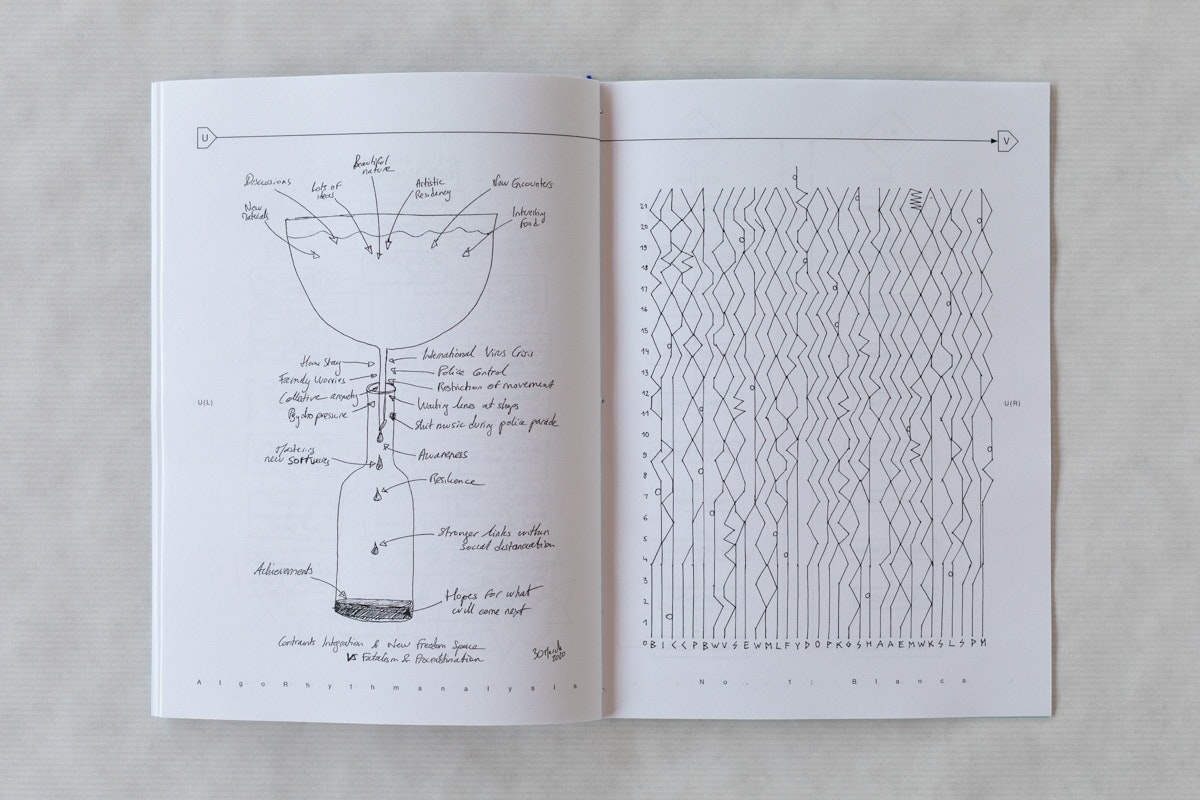 U
V
Beautiful
nature
Discussions
Lots of
ideas
Artistic
Residency
New Encounters
New
Materials
Interesting
Food
Home Stay
International Virus Crisis
Family Worries
Police Control
Collective anxiety
Restriction of movement
Psycho pressure
Waiting lines at shops
Shit music during police parade
Mastering
new softwares
Awareness
Resilience
Stronger links within
Social distanciation
Achievements
Hopes for what
will come next
Contraints Integration & New Freedom Space
VS Fatalism & Procrastination
30 March
2020
U(L)
AlgoRhythmanalysis
21
20
19
18
17
16
15
14
13
12
11
10
9
8
7
6
5
4
3
2
1
0 B I C C P B W V S E W M L F Y D O P K G S H A A E M W K S L S D M
U(R)
No. 1: Blanca